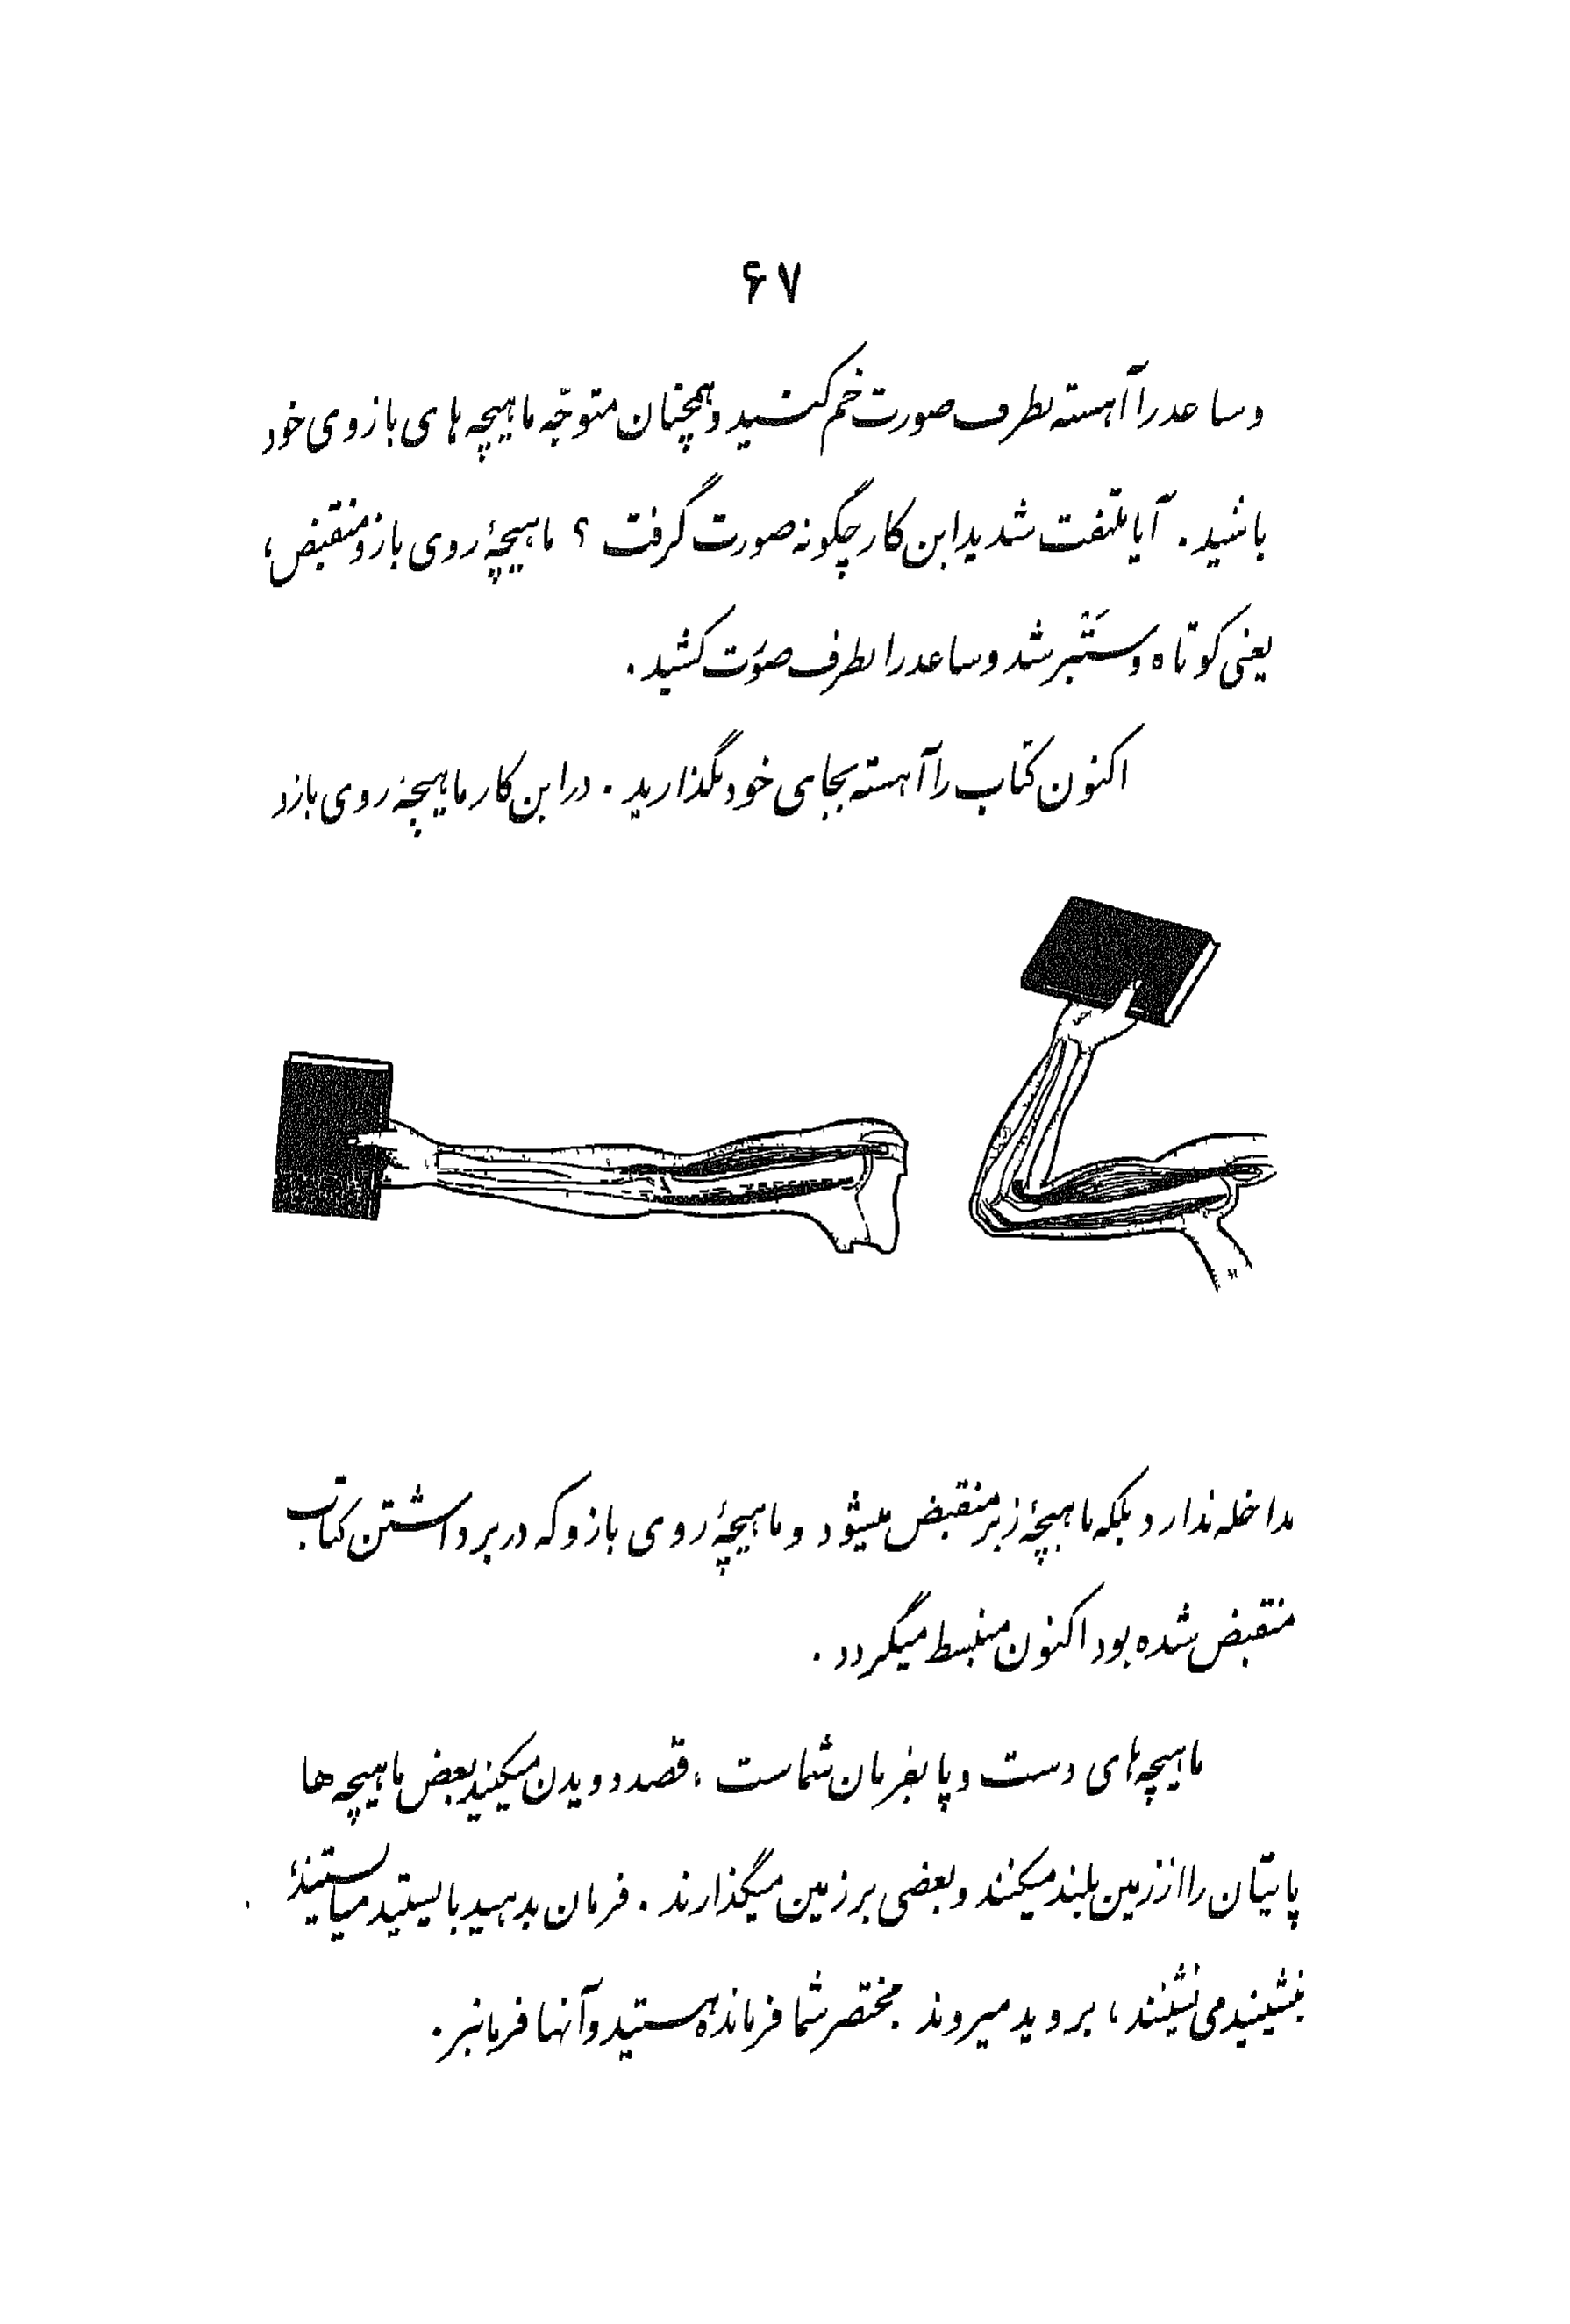 ۶۷
وساعد را آهسته بطرف صورت خم کنید و همچنان متوجّه ماهیچه های بازوی خود
باشید. آیا ملتفت شدید این کار چگونه صورت گرفت ؟ ماهیچهٔ روی بازو منقبض،
یعنی کوتاه و سَتَبر شد و ساعد را بطرف صورت کشید.
اکنون کتاب را آهسته بجای خود بگذارید. در این کار ماهیچهٔ روی بازو
مداخله ندارد بلکه ماهیچهٔ زیر منقبض میشود و ماهیچهٔ روی بازو که در برداشتن کتاب
منقبض شده بود اکنون منبسط میگردد.
ماهیچه های دست و پا بفرمان شماست، قصد دویدن میکنید بعض ماهیچه ها
پایتان را از زمین بلند میکنند و بعضی بر زمین میگذارند. فرمان بدهید بایستید میایستند،
بنشینید می نشینند، بروید میروند مختصر شما فرمانده هستید و آنها فرمانبر.